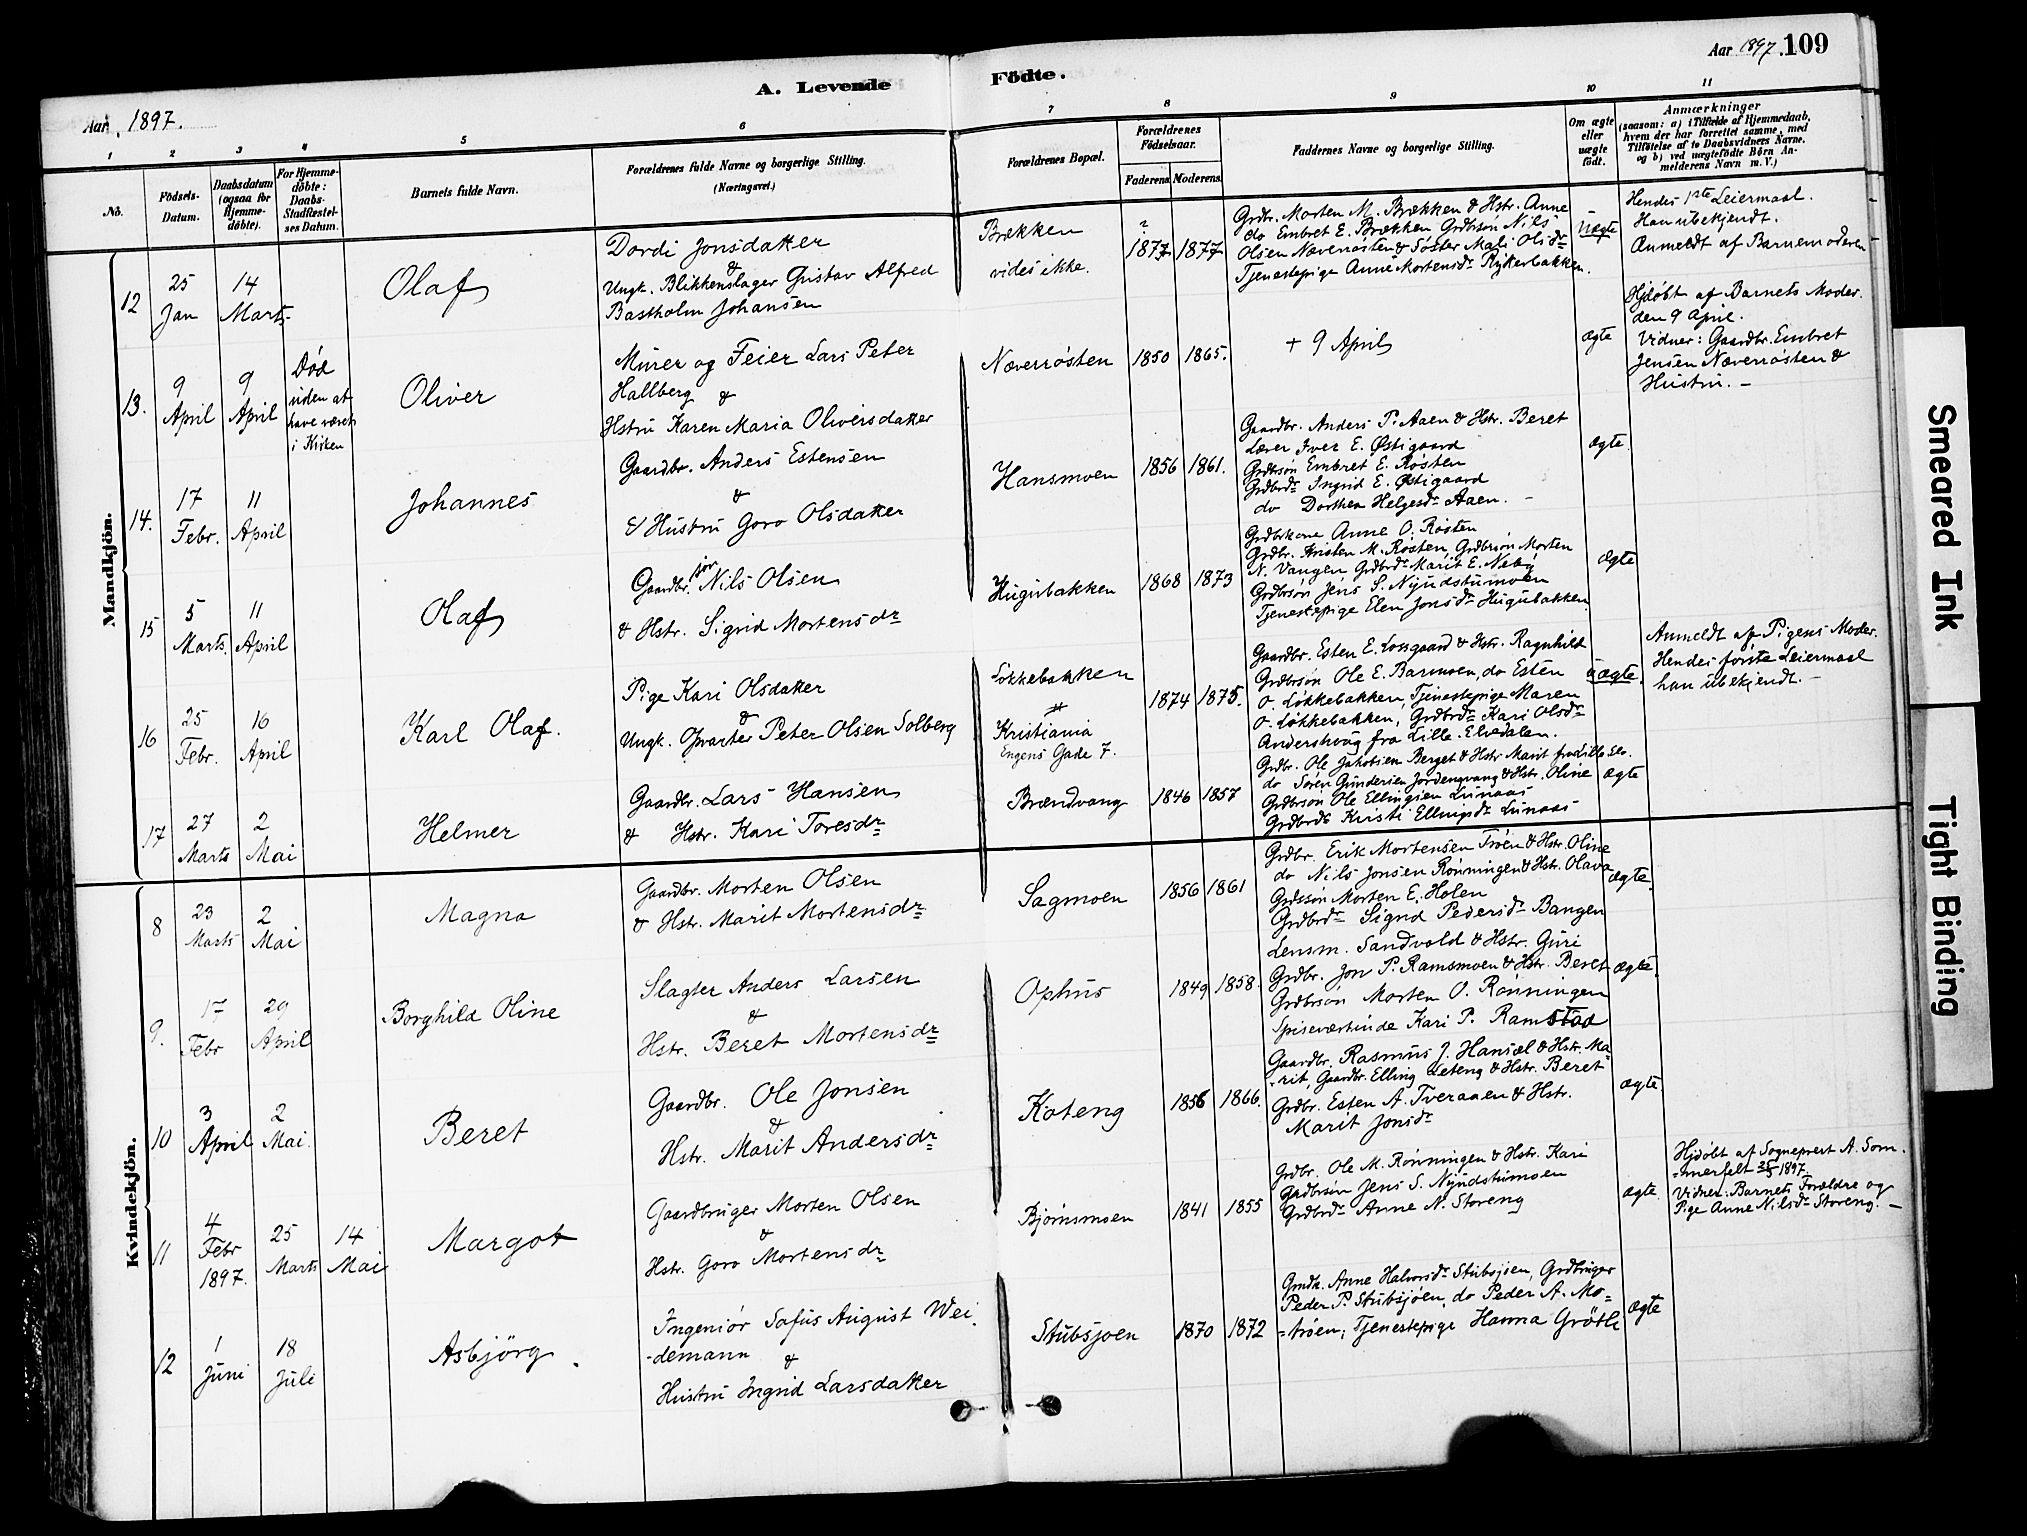 Aar 1897. 109
A. Levende Födte.
Aar 1897.
1 2 3 4 5 6 7 8 9 10 11
No.
Födsels-
Datum.
Daabsdatum
(ogsaa for
Hjemme-
döbte).
For Hjemme-
döbte:
Daabs-
Stadfæstel-
ses Datum.
Barnets fulde Navn.
Forældrenes fulde Navne og borgerlige Stilling.
(Næringsvei.)
Forældrenes Bopæl.
Forældrenes
Födselsaar.
Faderens. Moderens.
Faddernes Navne og borgerlige Stilling.
Om ægte
eller
uægte
födt.
Anmærkninger
(saasom: a) i Tilfælde af Hjemmedaab,
hvem der har forrettet samme, med
Tilföielse af to Daabsvidners Navne.
og b) ved uægtefödte Börn An-
melderens Navn m. V.)
Mandkjön.
12
25
Jan
14
Marts
Olaf
Dordi Jonsdatter
&
Ungk. Blikkenslager Gustav Alfred
Bastholm Johansen
Brækken
vides ikke.
?
1877 1877
Grdbr. Morten M. Brækken & Hstr. Anne
do Embret E. Brækken Grdbrsön Nils
Olsen Næverrosten & Söster Mali Olsdr
Tjenestepige Anne Mortensdr Rykerbakken.
Uægte
Hendes 1ste Leiermaal.
Han ubekjendt.
Anmeldt af Barnemoderen
13.
9
April
9
April
Död
uden at
have været
i Kirken
Oliver
Murer og Feier Lars Peter
Hallberg &
Hstru Karen Maria Oliversdatter
Næverrösten
1850 1865.
+ 9 April
ægte
Hjdöbt af Barnets Moder.
den 9 April.
Vidner: Gaardbr. Embret
Jensen Næverrösten &
Hustru. –
14.
17
Febr.
11
April
Johannes
Gaardbr. Anders Estensen
&
Hustru Goro Olsdatter
Hansmoen
1856 1861.
Gaardbr. Anders P. Aaen & Hstr. Beret
Lærer Iver E. Östigaard
Grdbrsön Embret E. Rosten
Grdbrdr Ingrid E. Östigaard
do Dorthea Helgesdr Aaen. –
ægte.
15
5
Marts.
11
April
Olaf
Gaardbr. jör Nils Olsen
& Hstr. Sigrid Mortensdr
Hugubakken
1868 1873
Grdbrkone Anne O. Rösten
Grdbr. Kristen M. Rosten, Grdbrsön Morten
N. Vangen Grdbrdr Marit E. Neby
Grdbrsön Jens S. Nyudstumoen
Tjenestepige Elen Jonsdr Hugubakken
ægte
16
25
Febr.
16
April
Karl Olaf.
Pige Kari Olsdatter
&
Ungk. Opvarter Peter Olsen Solberg
Lökkebakken
Kristiania
Engens Gade 7.
1874 1875.
Gaardbr. Esten E. Losgaard & Hstr. Ragnhild
Grdbrsön Ole E. Barmoen, do Esten
O. Lökkebakken, Tjenestepige Maren
O. Lökkebakken, Grdbrdr Kari Olsdr
Andershvag fra Lille-Elvedalen.
uægte.
Anmeldt af Pigens Moder.
Hendes förste Leiermaal
han ubekjendt. –
17
27
Marts
2
Mai
Helmer
Gaardbr. Lars Hansen
& Hstr. Kari Toresdr
Brændvang
1846 1857
Grdbr. Ole Jakobsen Berget & Hstr Marit fra Lille Elv.
do Sören Gundersen Jordengvang & Hstr. Oline
Grdbrsön Ole Ellingsen Lunaas
Grdbrdr Kristi Ellingsdr Lunaas
ægte
Kvindekjön.
8
23
Marts
2
Mai
Magna
Gaardbr. Morten Olsen
& Hstr. Marit Mortensdr
Sagmoen
1856 1861
Grdbr. Erik Mortensen Tröen & Hstr. Oline
do Nils Jonsen Rönningen & Hstr. Olava
Grdssön Morten E. Holen
Grdbrdr Sigrid Pedersdr Bangen
ægte.
9.
17
Febr
29
April
Borghild Oline
Slagter Anders Larsen
&
Hstr. Beret Mortensdr
Ophus
1849 1858.
Lensm. Sandvold & Hstr. Guri
Grdbr. Jon P. Ramsmoen & Hstr. Beret
Grdbrsön Morten O. Rönningen
Spiseværtinde Kari P. Ramstad
ægte.
10
3
April
2
Mai.
Beret
Gaardbr. Ole Jonsen
&
Hstr. Marit Andersdr
Koteng
1856 1866.
Gaardbr. Rasmus J. Hansæl & Hstr. Ma-
-rit, Gaardbr. Elling Leteng & Hstr. Beret
Grdbr. Esten A. Tveraaen & Hstr.
Marit Jonsdr
ægte
11
4
Febr
1897.
25
Marts
14
Mai
Margot
Gaardbruger Morten Olsen
&
Hstr. Goro Mortensdr
Bjornsmoen
1841 1855
Grdbr. Ole M. Rönningen & Hstr. Kari
Grdbrsön Jens S. Nyudstumoen
Grdbrdr Anne N. Storeng
ægte.
Hjdöbt af Sogneprest A. Som.
-merfelt 25/3 1897.
Vidner: Barnets Forældre og
Pige Anne Nilsdr Storeng. –
12
1
Juni
18
Juli
Asbjörg.
Ingeniör Sofus August Wei.
-demann &
Hustru Ingrid Larsdatter
Stubsjoen
1870 1872
Gmdk. Anne Halvorsdr Stubsjoen, Grdbruger
Peder P. Stubsjöen, do Peder A. Mo=
=tröen; Tjenestepige Hanna Gröth
ægte
Smeared Ink
Tight Binding